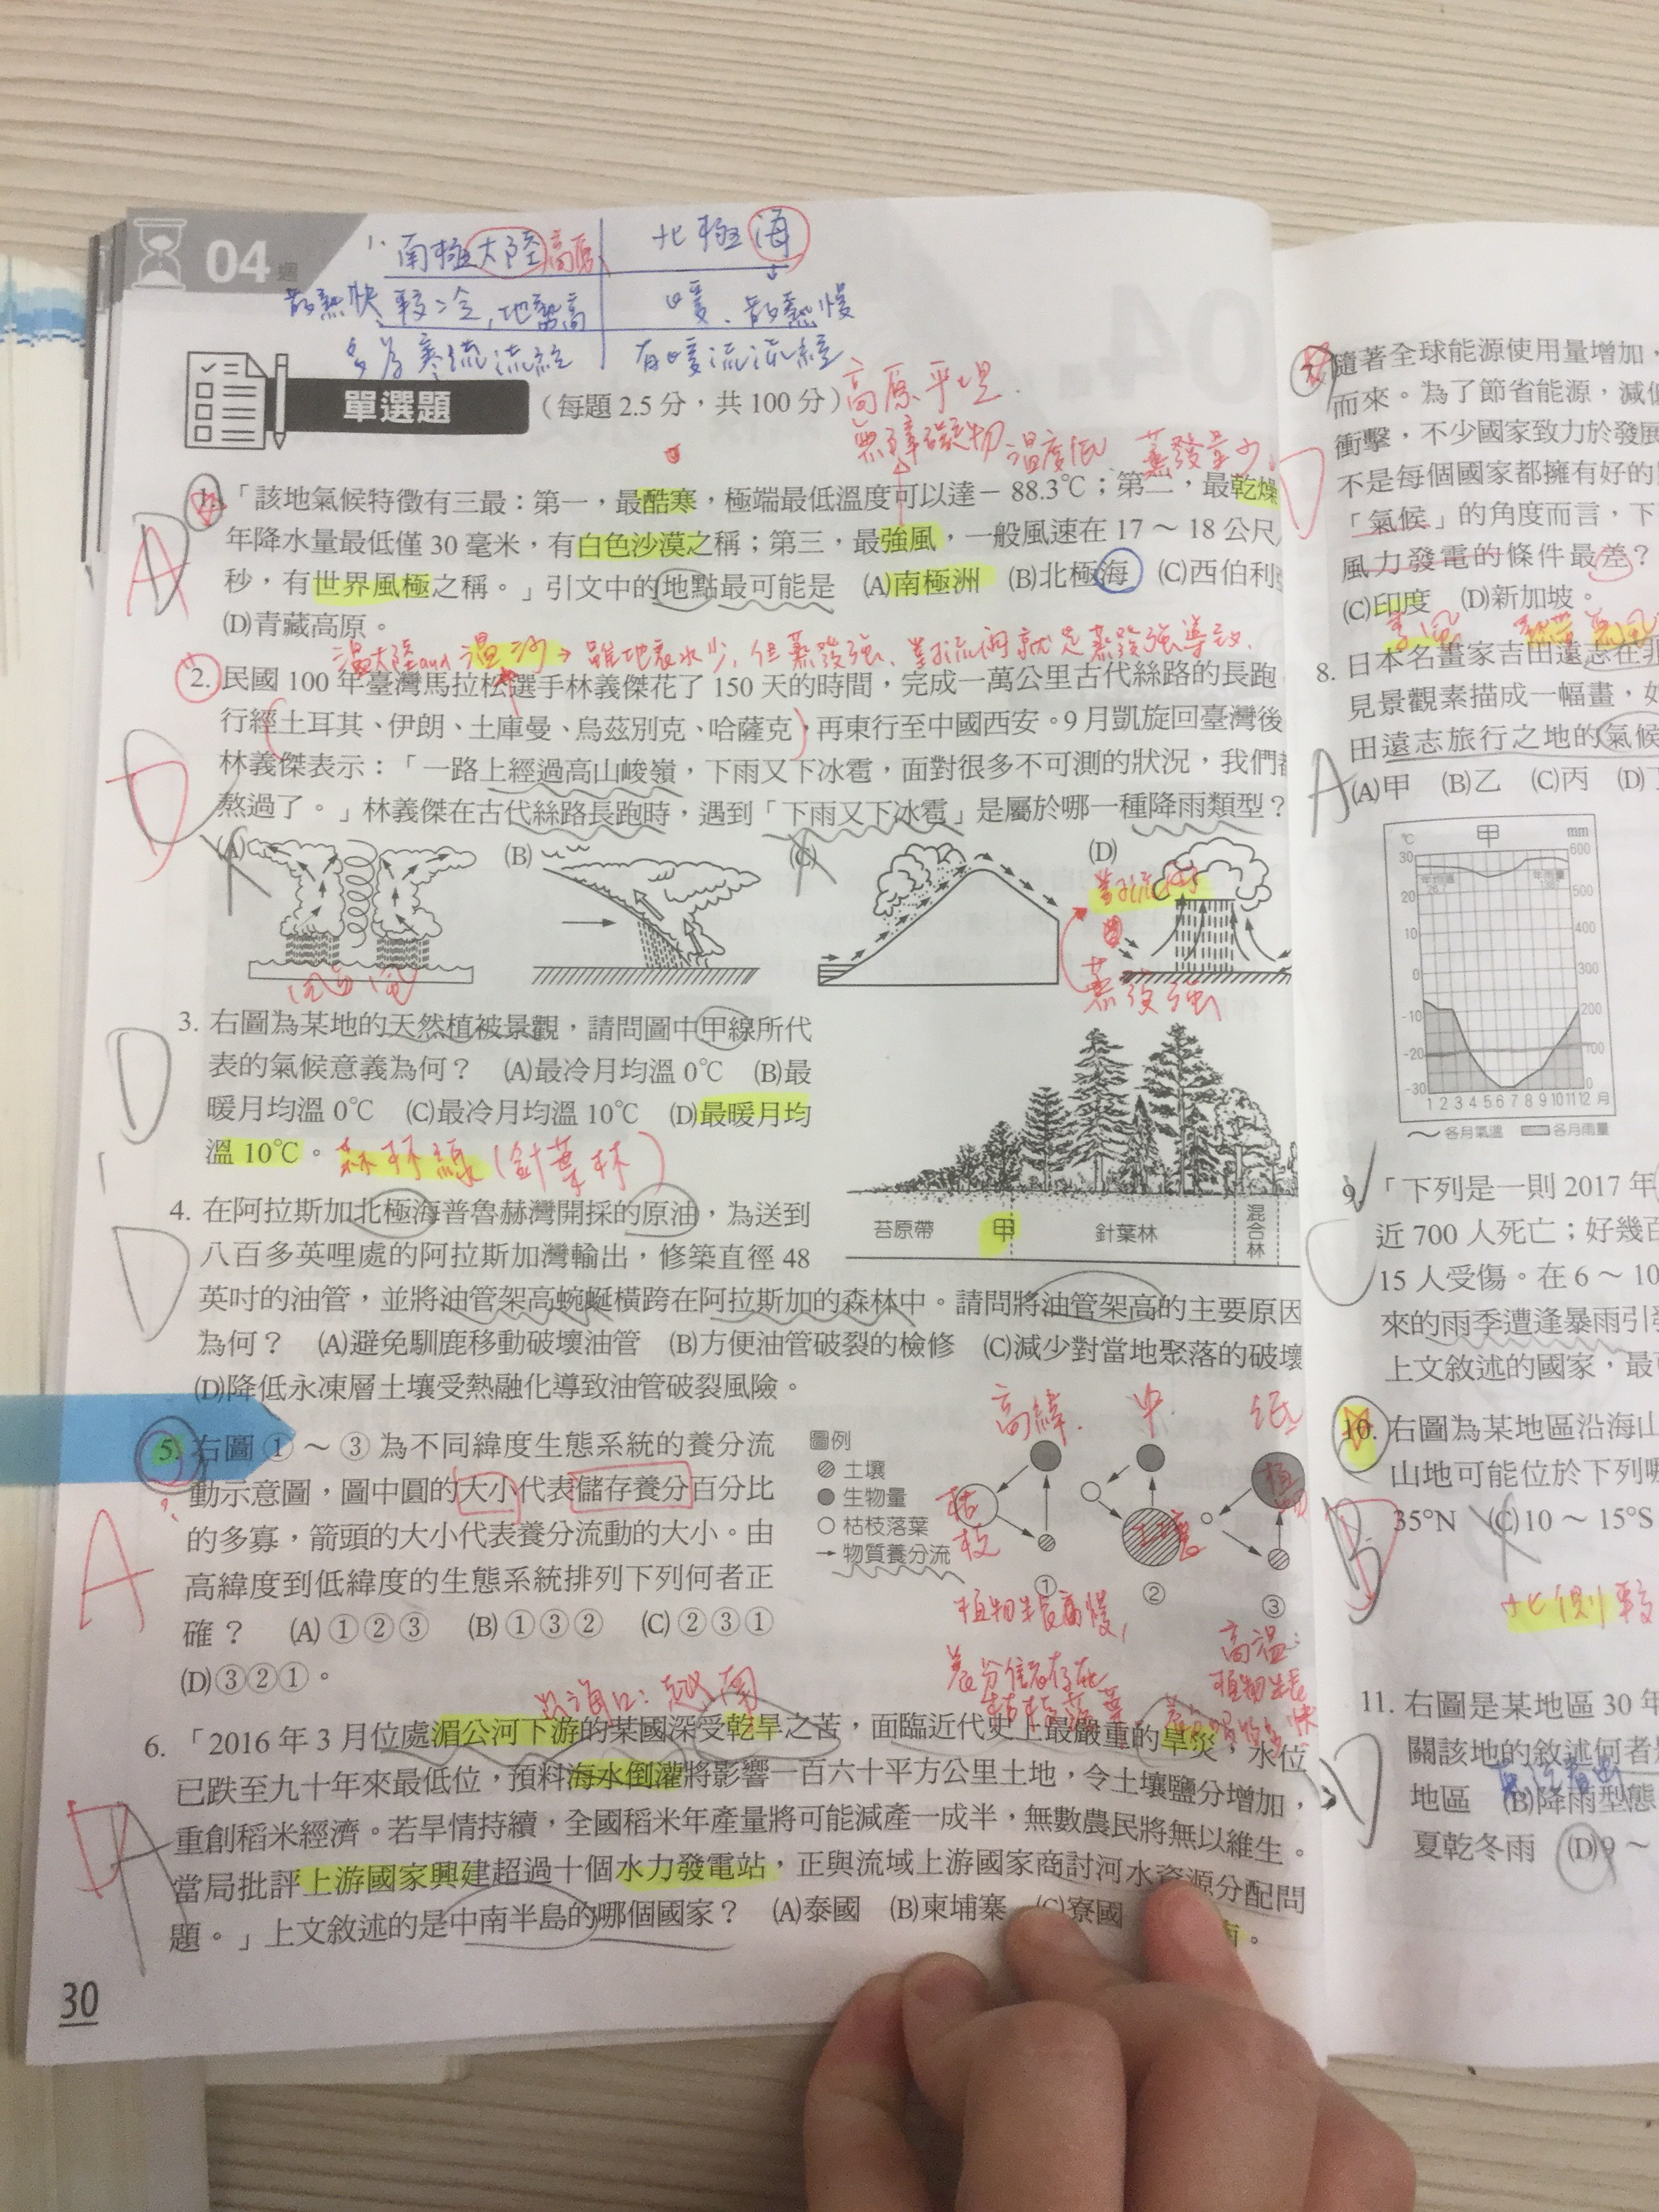 04 週
1. 南極大陸 高原
北極海
散熱快 較冷, 地勢高
暖、散熱慢
多為寒流流經
有暖流流經
單選題
(每題 2.5 分,共 100 分)
高原平坦
無障礙物
溫度低 蒸發量少
1.「該地氣候特徵有三最:第一,最酷寒,極端最低溫度可以達-88.3℃;第二,最乾燥
年降水量最低僅 30 毫米,有白色沙漠之稱;第三,最強風,一般風速在 17~18 公尺
秒,有世界風極之稱。」引文中的地點最可能是 (A)南極洲 (B)北極海 (C)西伯利
(D)青藏高原。
A
溫大陸and溫沙→雖地表水少,但蒸發強,對流雨就是蒸發強導致.
2. 民國 100 年臺灣馬拉松選手林義傑花了 150 天的時間,完成一萬公里古代絲路的長跑
行經土耳其、伊朗、土庫曼、烏茲別克、哈薩克,再東行至中國西安。9 月凱旋回臺灣後
林義傑表示:「一路上經過高山峻嶺,下雨又下冰雹,面對很多不可測的狀況,我們
熬過了。」林義傑在古代絲路長跑時,遇到「下雨又下冰雹」是屬於哪一種降雨類型?
D
(A)
(B)
(C)
(D)
對流雨
蒸發強
3. 右圖為某地的天然植被景觀,請問圖中甲線所代
表的氣候意義為何? (A)最冷月均溫 0℃ (B)最
暖月均溫 0℃ (C)最冷月均溫 10℃ (D)最暖月均
溫 10℃。
森林線(針葉林)
D
苔原帶
甲
針葉林
混合林
4. 在阿拉斯加北極海普魯赫灣開採的原油,為送到
八百多英哩處的阿拉斯加灣輸出,修築直徑 48
英吋的油管,並將油管架高蜿蜒橫跨在阿拉斯加的森林中。請問將油管架高的主要原因
為何? (A)避免馴鹿移動破壞油管 (B)方便油管破裂的檢修 (C)減少對當地聚落的破壞
(D)降低永凍層土壤受熱融化導致油管破裂風險。
D
5. 右圖①~③為不同緯度生態系統的養分流
動示意圖,圖中圓的大小代表儲存養分百分比
的多寡,箭頭的大小代表養分流動的大小。由
高緯度到低緯度的生態系統排列下列何者正
確? (A)①②③ (B)①③② (C)②③①
(D)③②①。
A
圖例
土壤
生物量
枯枝落葉
物質養分流
高緯.
中
低
枯枝
土壤
植物
①
②
③
植物生長慢,
高溫:
植物生長快
出海口:越南
6.「2016 年 3 月位處湄公河下游的某國深受乾旱之苦,面臨近代史上最嚴重的旱災,水位
已跌至九十年來最低位,預料海水倒灌將影響一百六十平方公里土地,令土壤鹽分增加,
重創稻米經濟。若旱情持續,全國稻米年產量將可能減產一成半,無數農民將無以維生。
當局批評上游國家興建超過十個水力發電站,正與流域上游國家商討河水資源分配問
題。」上文敘述的是中南半島的哪個國家? (A)泰國 (B)柬埔寨 (C)寮國
南。
30
隨著全球能源使用量增加,
而來。為了節省能源,減
衝擊,不少國家致力於發展
不是每個國家都擁有好的
「氣候」的角度而言,下
風力發電的條件最差?
(C)印度 (D)新加坡。
季風
8. 日本名畫家吉田遠志在非
見景觀素描成一幅畫,如
田遠志旅行之地的氣候
(A)甲 (B)乙 (C)丙 (D)
A
甲
℃
mm
30
20
10
0
-10
-20
-30
600
500
400
300
200
100
0
1 2 3 4 5 6 7 8 9 10 11 12 月
各月氣溫 各月雨量
9.「下列是一則 2017 年
近 700 人死亡;好幾百
15 人受傷。在 6~10
來的雨季遭逢暴雨引發
上文敘述的國家,最
C
10. 右圖為某地區沿海山
山地可能位於下列哪
35°N (C)10~15°S
B
北側較
11. 右圖是某地區 30 年
關該地的敘述何者
地區 (B)降雨型態
夏乾冬雨 (D)9~